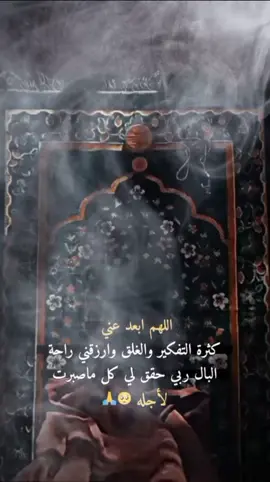 اللهم ابعد عني
كثرة التفكير والغلق وارزقني راحة
البال ربي حقق لي كل ماصبرت
لأجله 🥺🙏